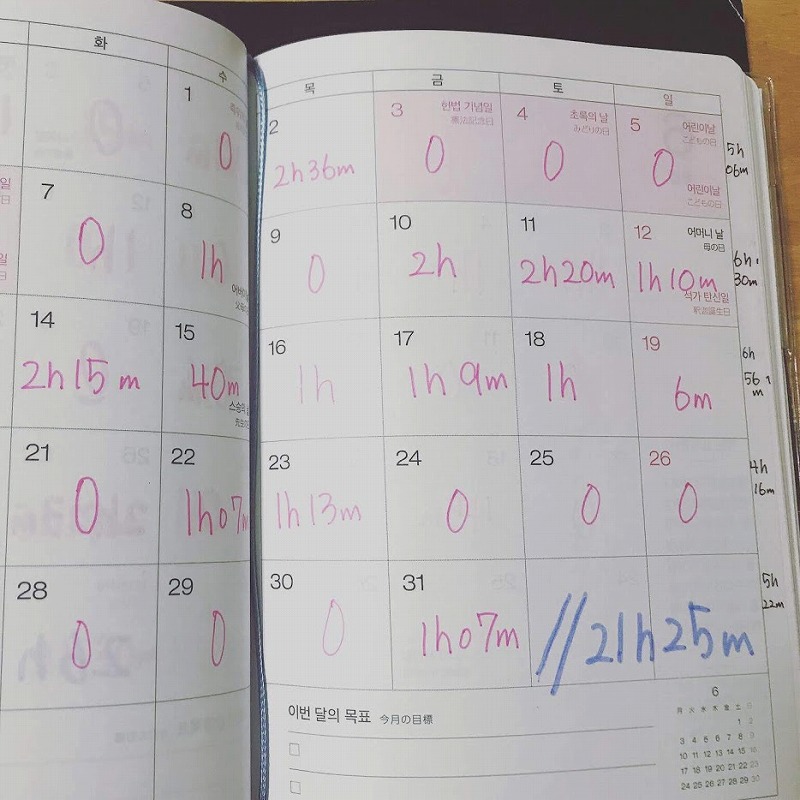 화 수 목 금 토 일
1
0
2
2h36m
3 헌법 기념일
憲法記念日
0
4 초록의 날
みどりの日
0
5 어린이날
こどもの日
0
어린이날
こどもの日
5h
06m
7
0
8
1h
9
0
10
2h
11
2h20m
12 어머니 날
母の日
1h10m
석가 탄신일
釈迦誕生日
6h
30m
14
2h15m
15
40m
16
1h
17
1h9m
18
1h
19
6m
6h
56
m
21
0
22
1h07m
23
1h13m
24
0
25
0
26
0
4h
16m
28
0
29
0
30
0
31
1h07m
//21h25m
5h
22m
이번 달의 목표 今月の目標
6
月 火 水 木 金 土 日
1 2
3 4 5 6 7 8 9
10 11 12 13 14 15 16
17 18 19 20 21 22 23
24 25 26 27 28 29 30